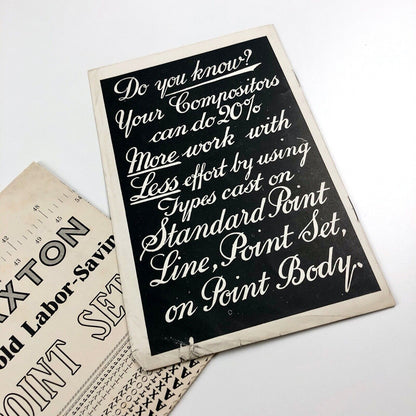 Do you know?
Your Compositors
can do 20%
More work with
Less effort by using
Types cast on
Standard Point
Line, Point Set,
on Point Body.
42
45
48
51
54
43
48
XTON
old Labor-Savin
OINT SET